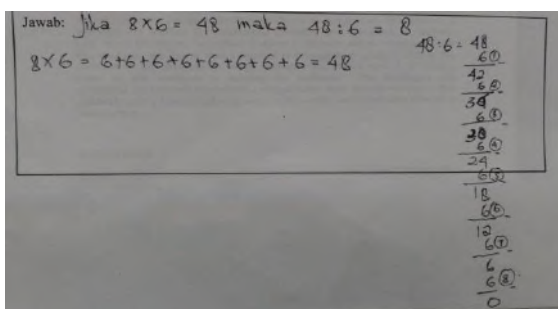 Jawab: Jika 8×6 = 48 maka 48 : 6 = 8
8×6 = 6+6+6+6+6+6+6+6 = 48
48 : 6 = 48
6 ① -
42
6 ② -
36
6 ③ -
30
6 ④ -
24
6 ⑤ -
18
6 ⑥ -
12
6 ⑦ -
6
6 ⑧ -
0